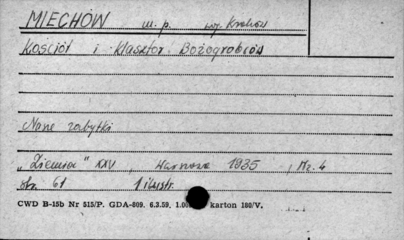 MIECHÓW m.p. woj. Kraków
Kościół i klasztor Bożogrobców
Nane zabytki
„Ziemia" XXV, Warszawa 1935, Nr. 4
str. 61 1 ilustr.
CWD B-15b Nr 515/P. GDA-809. 6.3.59. 1.00 karton 180/V.